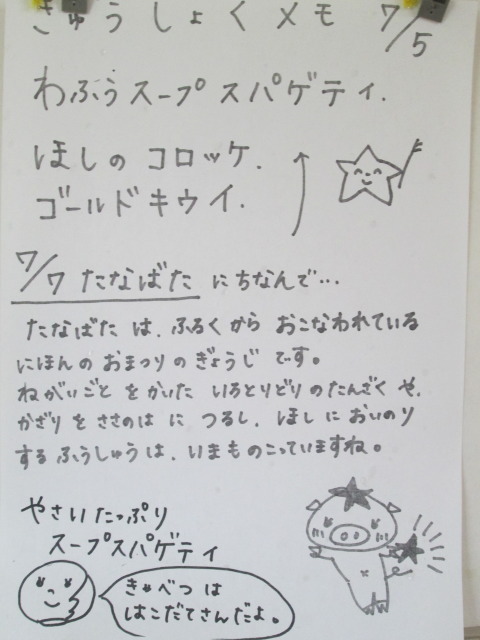 きゅうしょくメモ 7/5
わふうスープスパゲティ.
ほしのコロッケ.
ゴールドキウイ.
7/7 たなばた にちなんで…
たなばた は、ふるく から おこなわれている
にほんの おまつりの ぎょうじ です。
ねがいごと をかいた いろとりどり のたんざく や、
かざり を ささのは に つるし、ほし に おいのり
する ふうしゅう は、いまものこっていますね。
やさいたっぷり
スープスパゲティ
きゃべつ は
はこだてさんだよ。